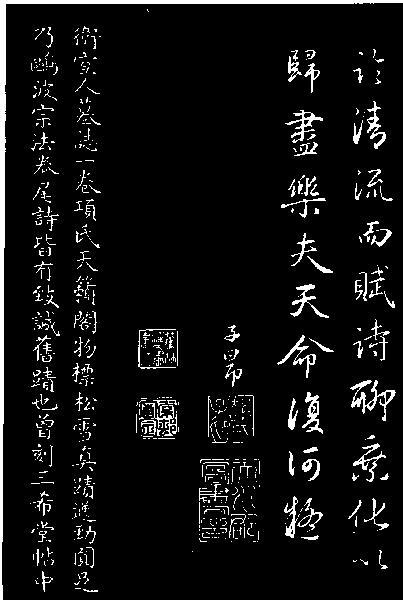 於清流而賦詩聊乘化以
歸盡樂夫天命復何疑
子昂
衛宜人墓誌一卷項氏天籟閣物標松雪真蹟遒勁圓足
乃鷗波宗法卷尾詩皆有致誠舊蹟也曾刻三希堂帖中